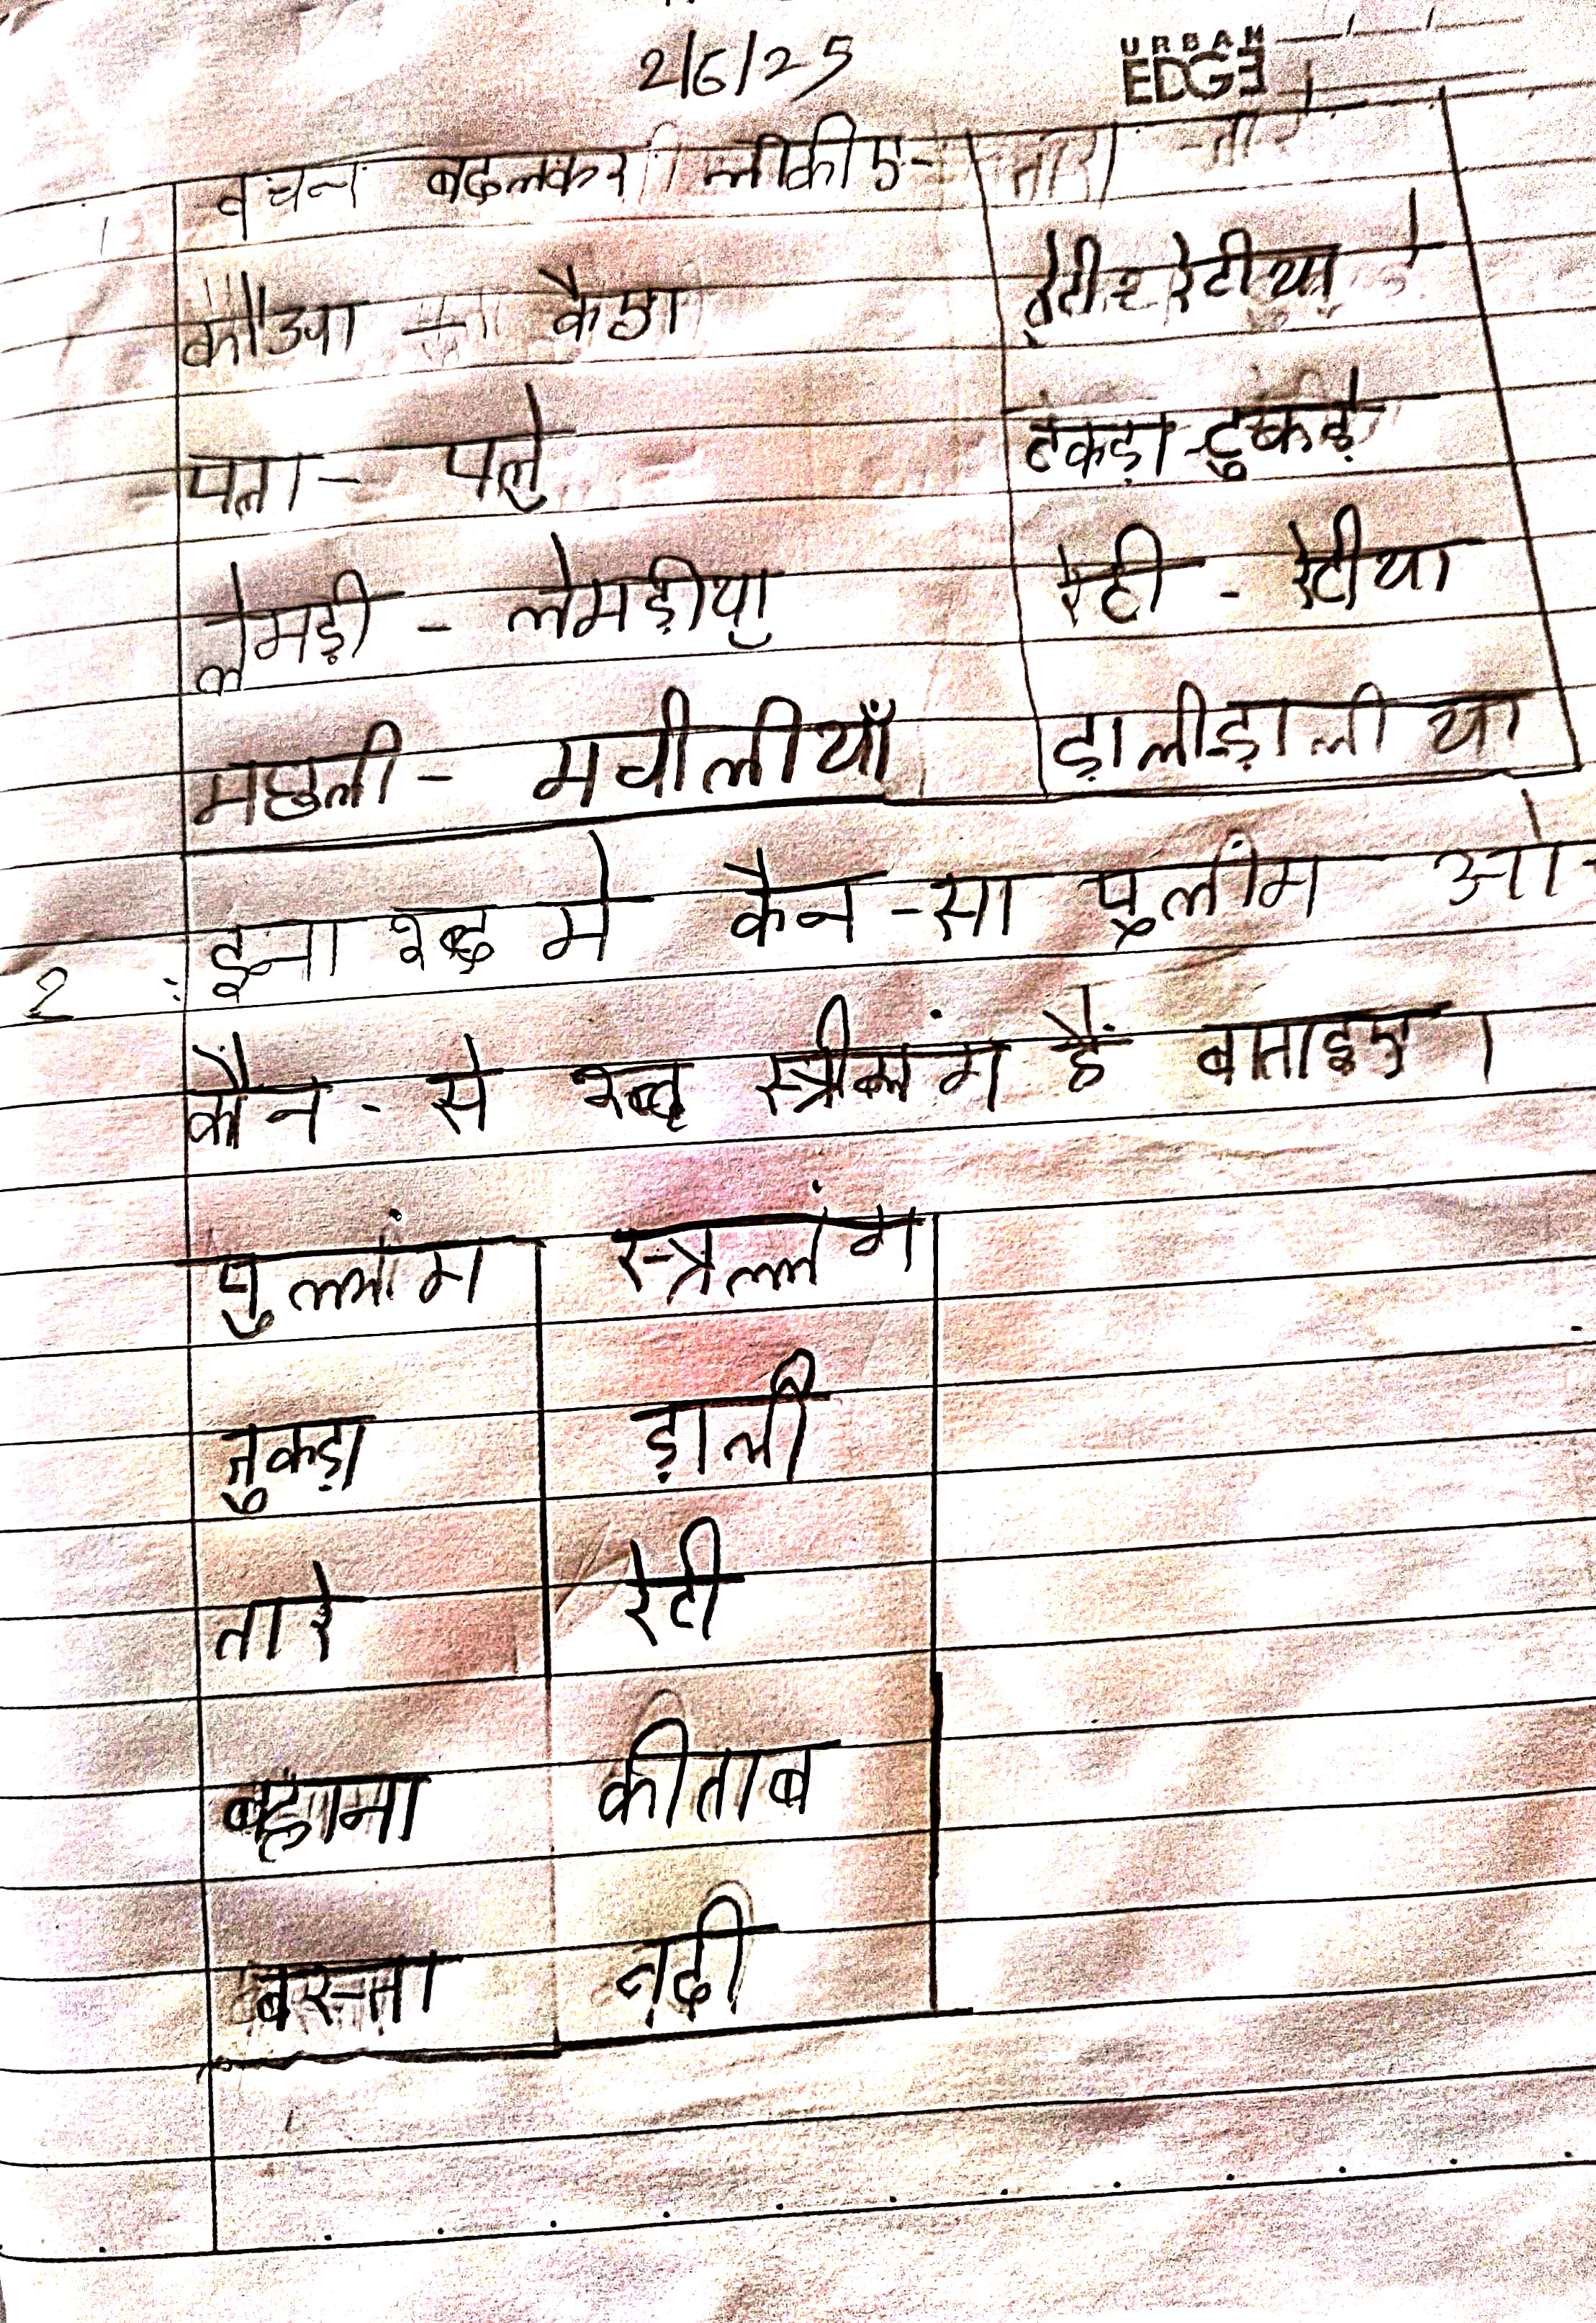 2/6/25
URBAN
EDGE
वचन बदलकर लीकीए- तारा - तारे
कौआ - कैए रेटी रेटीया
पता - पते टकड़ा - टुकड़े
लेमड़ी - लेमड़ीया रेटी - रेटीया
मछली - मचीलीयाँ ड़ाली ड़ालीया
2 : इना शब्द मे कैन - सा पुलींग
कौन - से शब्द स्त्रीलंग हैं बाताइए ।
पुल्लींग
तुकड़ा ड़ाली
तारे रेटी
बहाना कीताब
बस्ता नदी